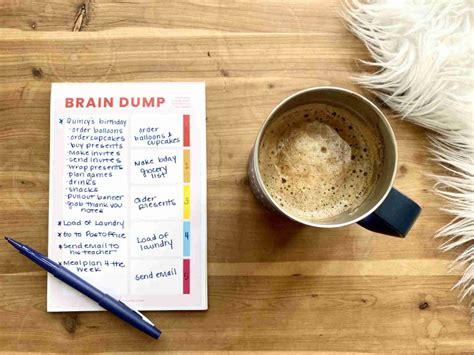 BRAIN DUMP
* Quincy's birthday
- order balloons
- order cupcakes
- buy presents
- Make invites
- send invites
- wrap presents
- plan games
- drinks
- snacks
- pull out banner
- grab thank you
notes
* Load of Laundry
* Go to Post Office
* Send email to
his teacher
* Meal plan 4 the
week
order
balloons &
cupcakes
1
Make bday
grocery
list
2
Order
presents
3
Load of
laundry
4
Send email
5